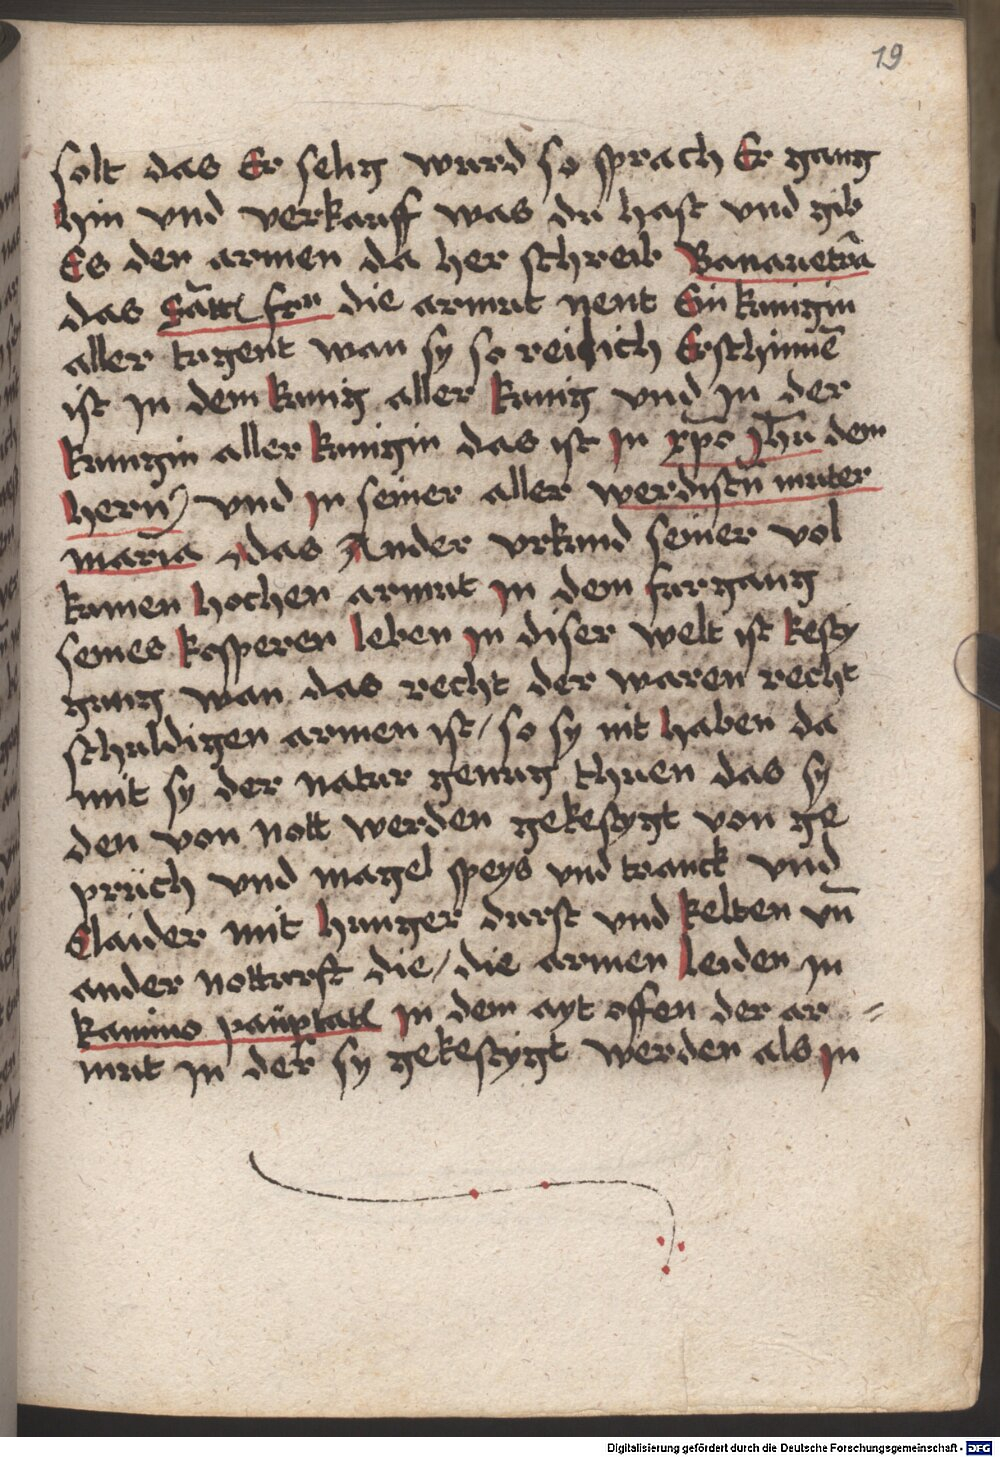 19
solt das Er selig wurd so sprach Er gang
hin vnd verkauff was du hast vnd gib
Es den armen da her schreib Bonauetrā
das Sātt frn die armut nent Ein kunigin
aller tugent wan sy so reilich Erschinnē
ist jn dem kunig aller kunig vnd jn der
kunigin aller kunigin das ist jn xp̄o jhū dem
hern vnd jn seiner aller werdistn̄ muter
maria das Ander vrkund seiner vol
kumen hochen armut jn dem furgang
seines kosperen leben jn diser welt ist kesty
gung wan das recht der waren recht
schuldigen armen ist / so sy nit haben da
mit sy der natur genug thuen das sy
den von nott werden gekestygt von ge
prüch vnd magel speys vnd tranck vnd
Claider mit hunger durst vnd kelten vn̄
ander notturft die / die armen leiden jn
kamino paup̄tatis jn dem ayt offen der ar =
mut jn der sy gekestygt werden als jn
Digitalisierung gefördert durch die Deutsche Forschungsgemeinschaft - DFG